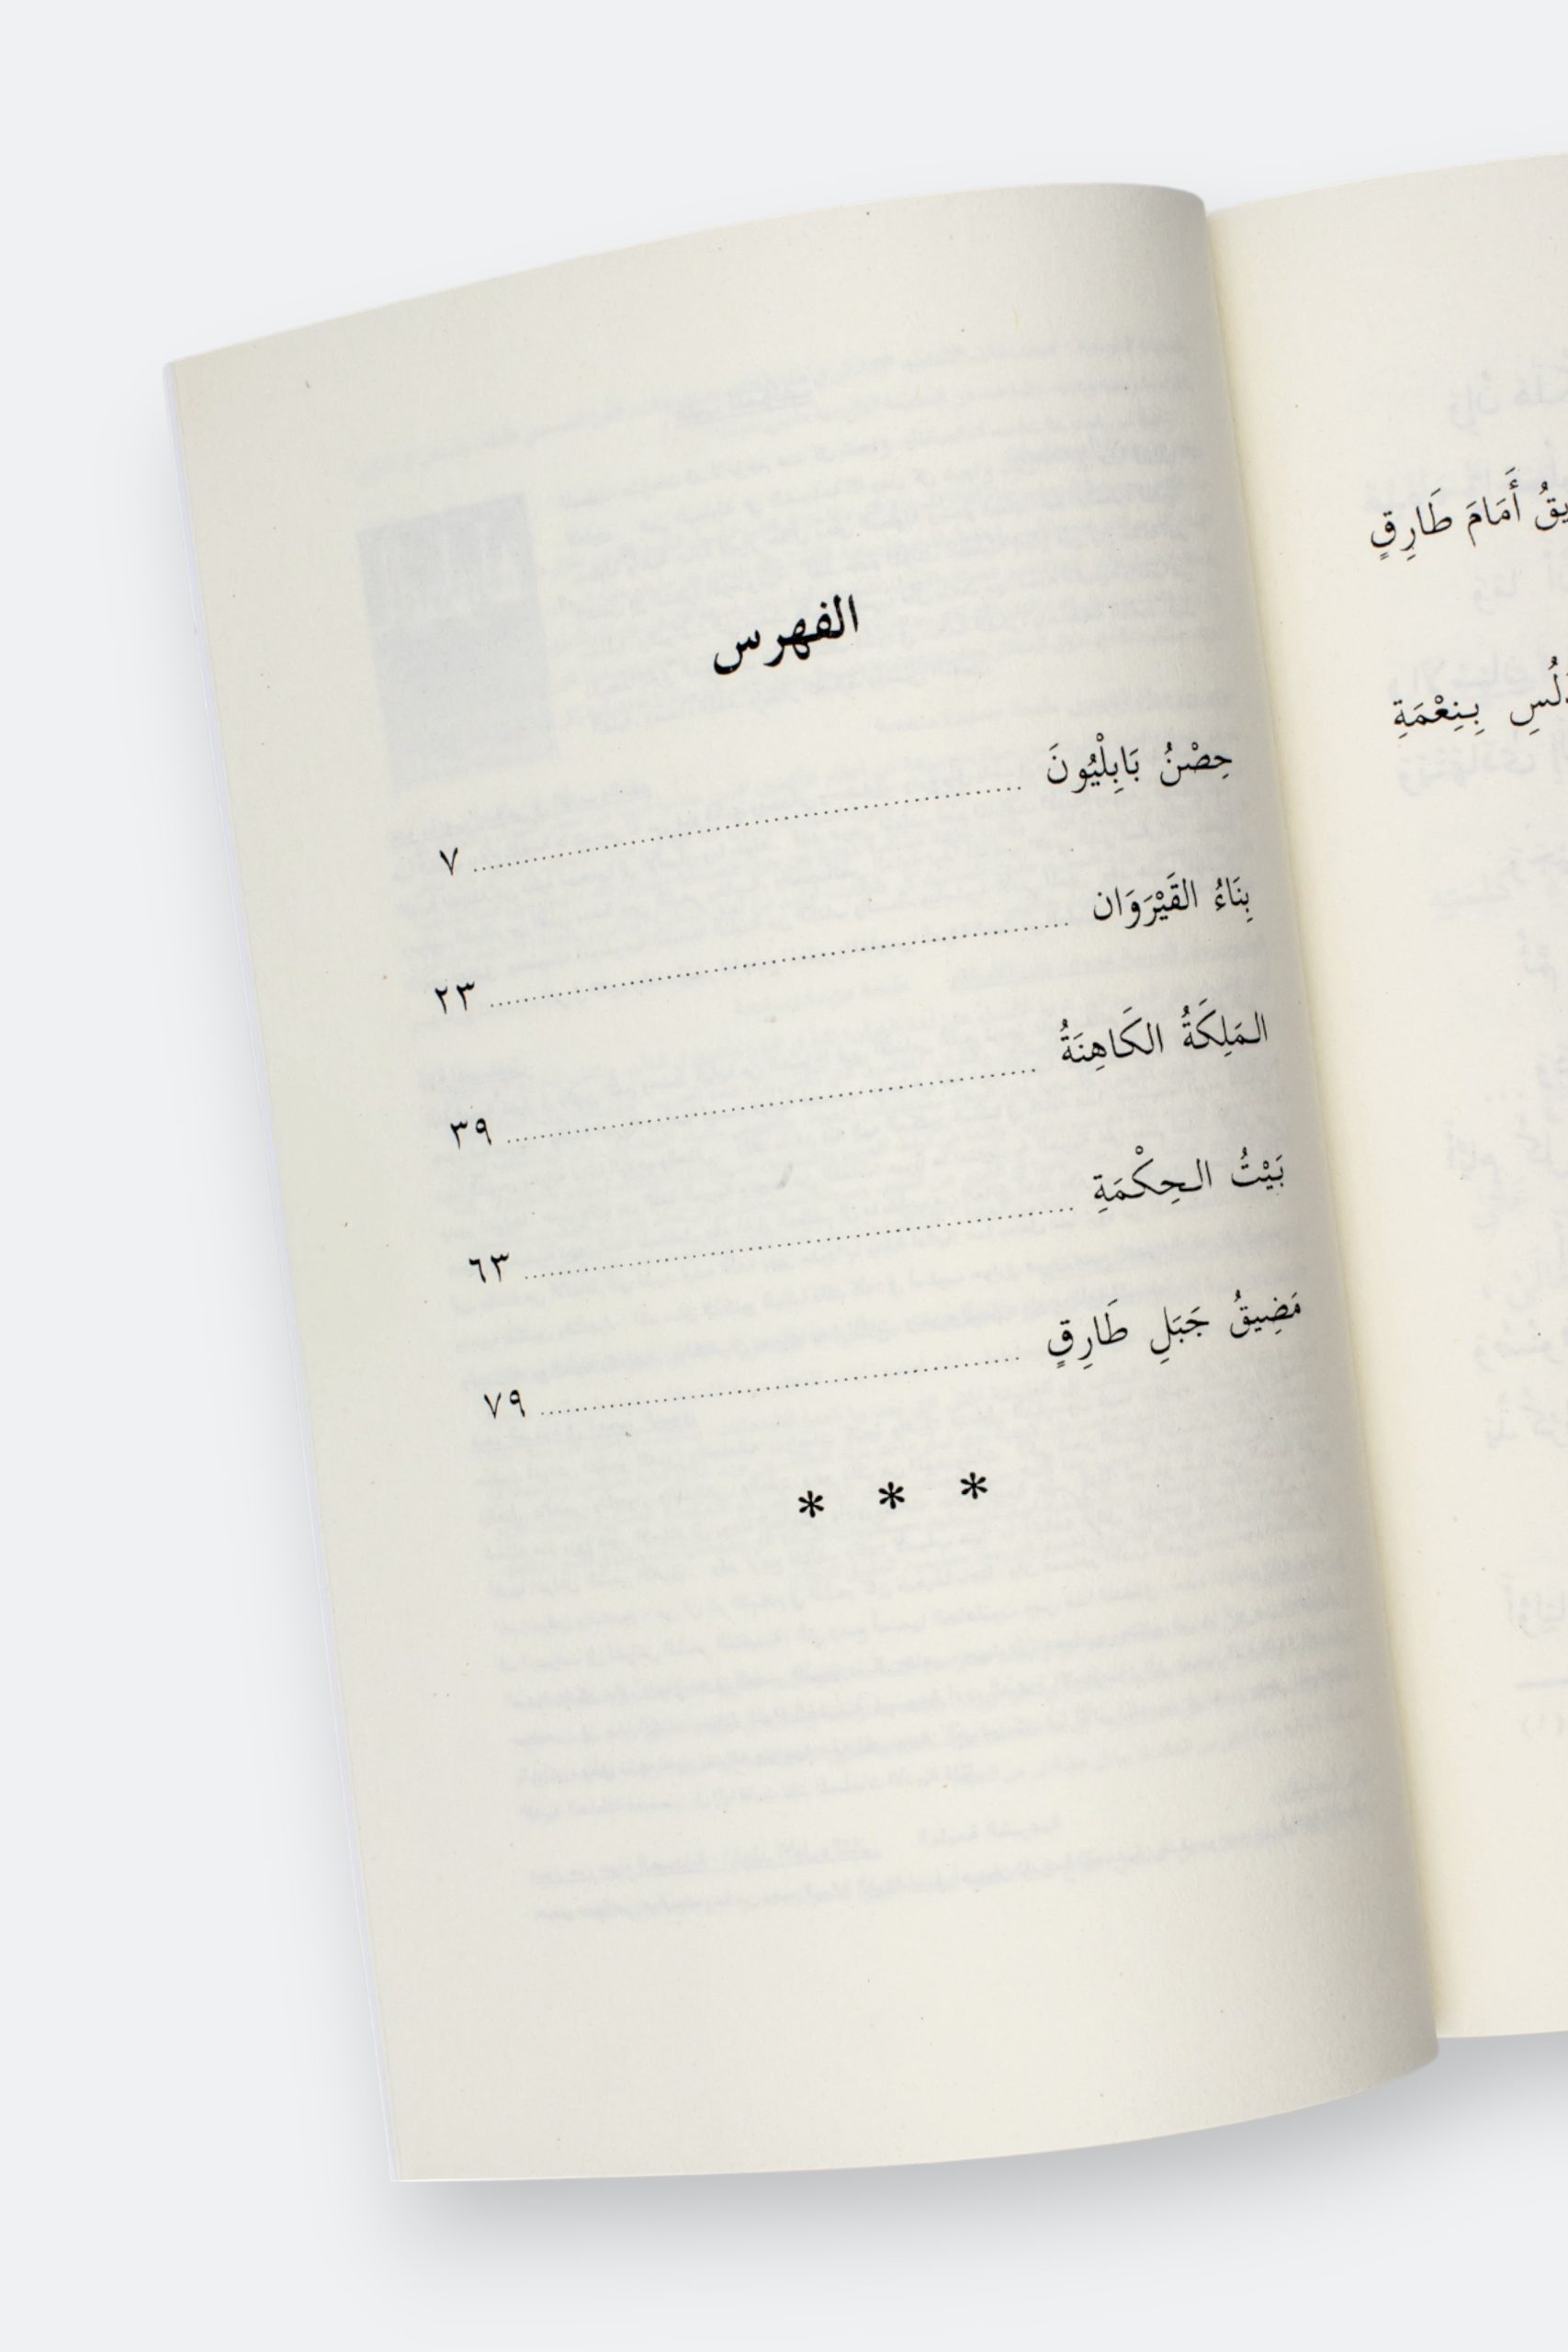 أَمَامَ طَارِقٍ
بِنِعْمَةِ
الفهرس
حِصْنُ بَابِلْيُونَ ................ ٧
بِنَاءُ القَيْرَوَان ................ ٢٣
المَلِكَةُ الكَاهِنَةُ ................ ٣٩
بَيْتُ الحِكْمَةِ ................ ٦٣
مَضِيقُ جَبَلِ طَارِقٍ ................ ٧٩
* * *